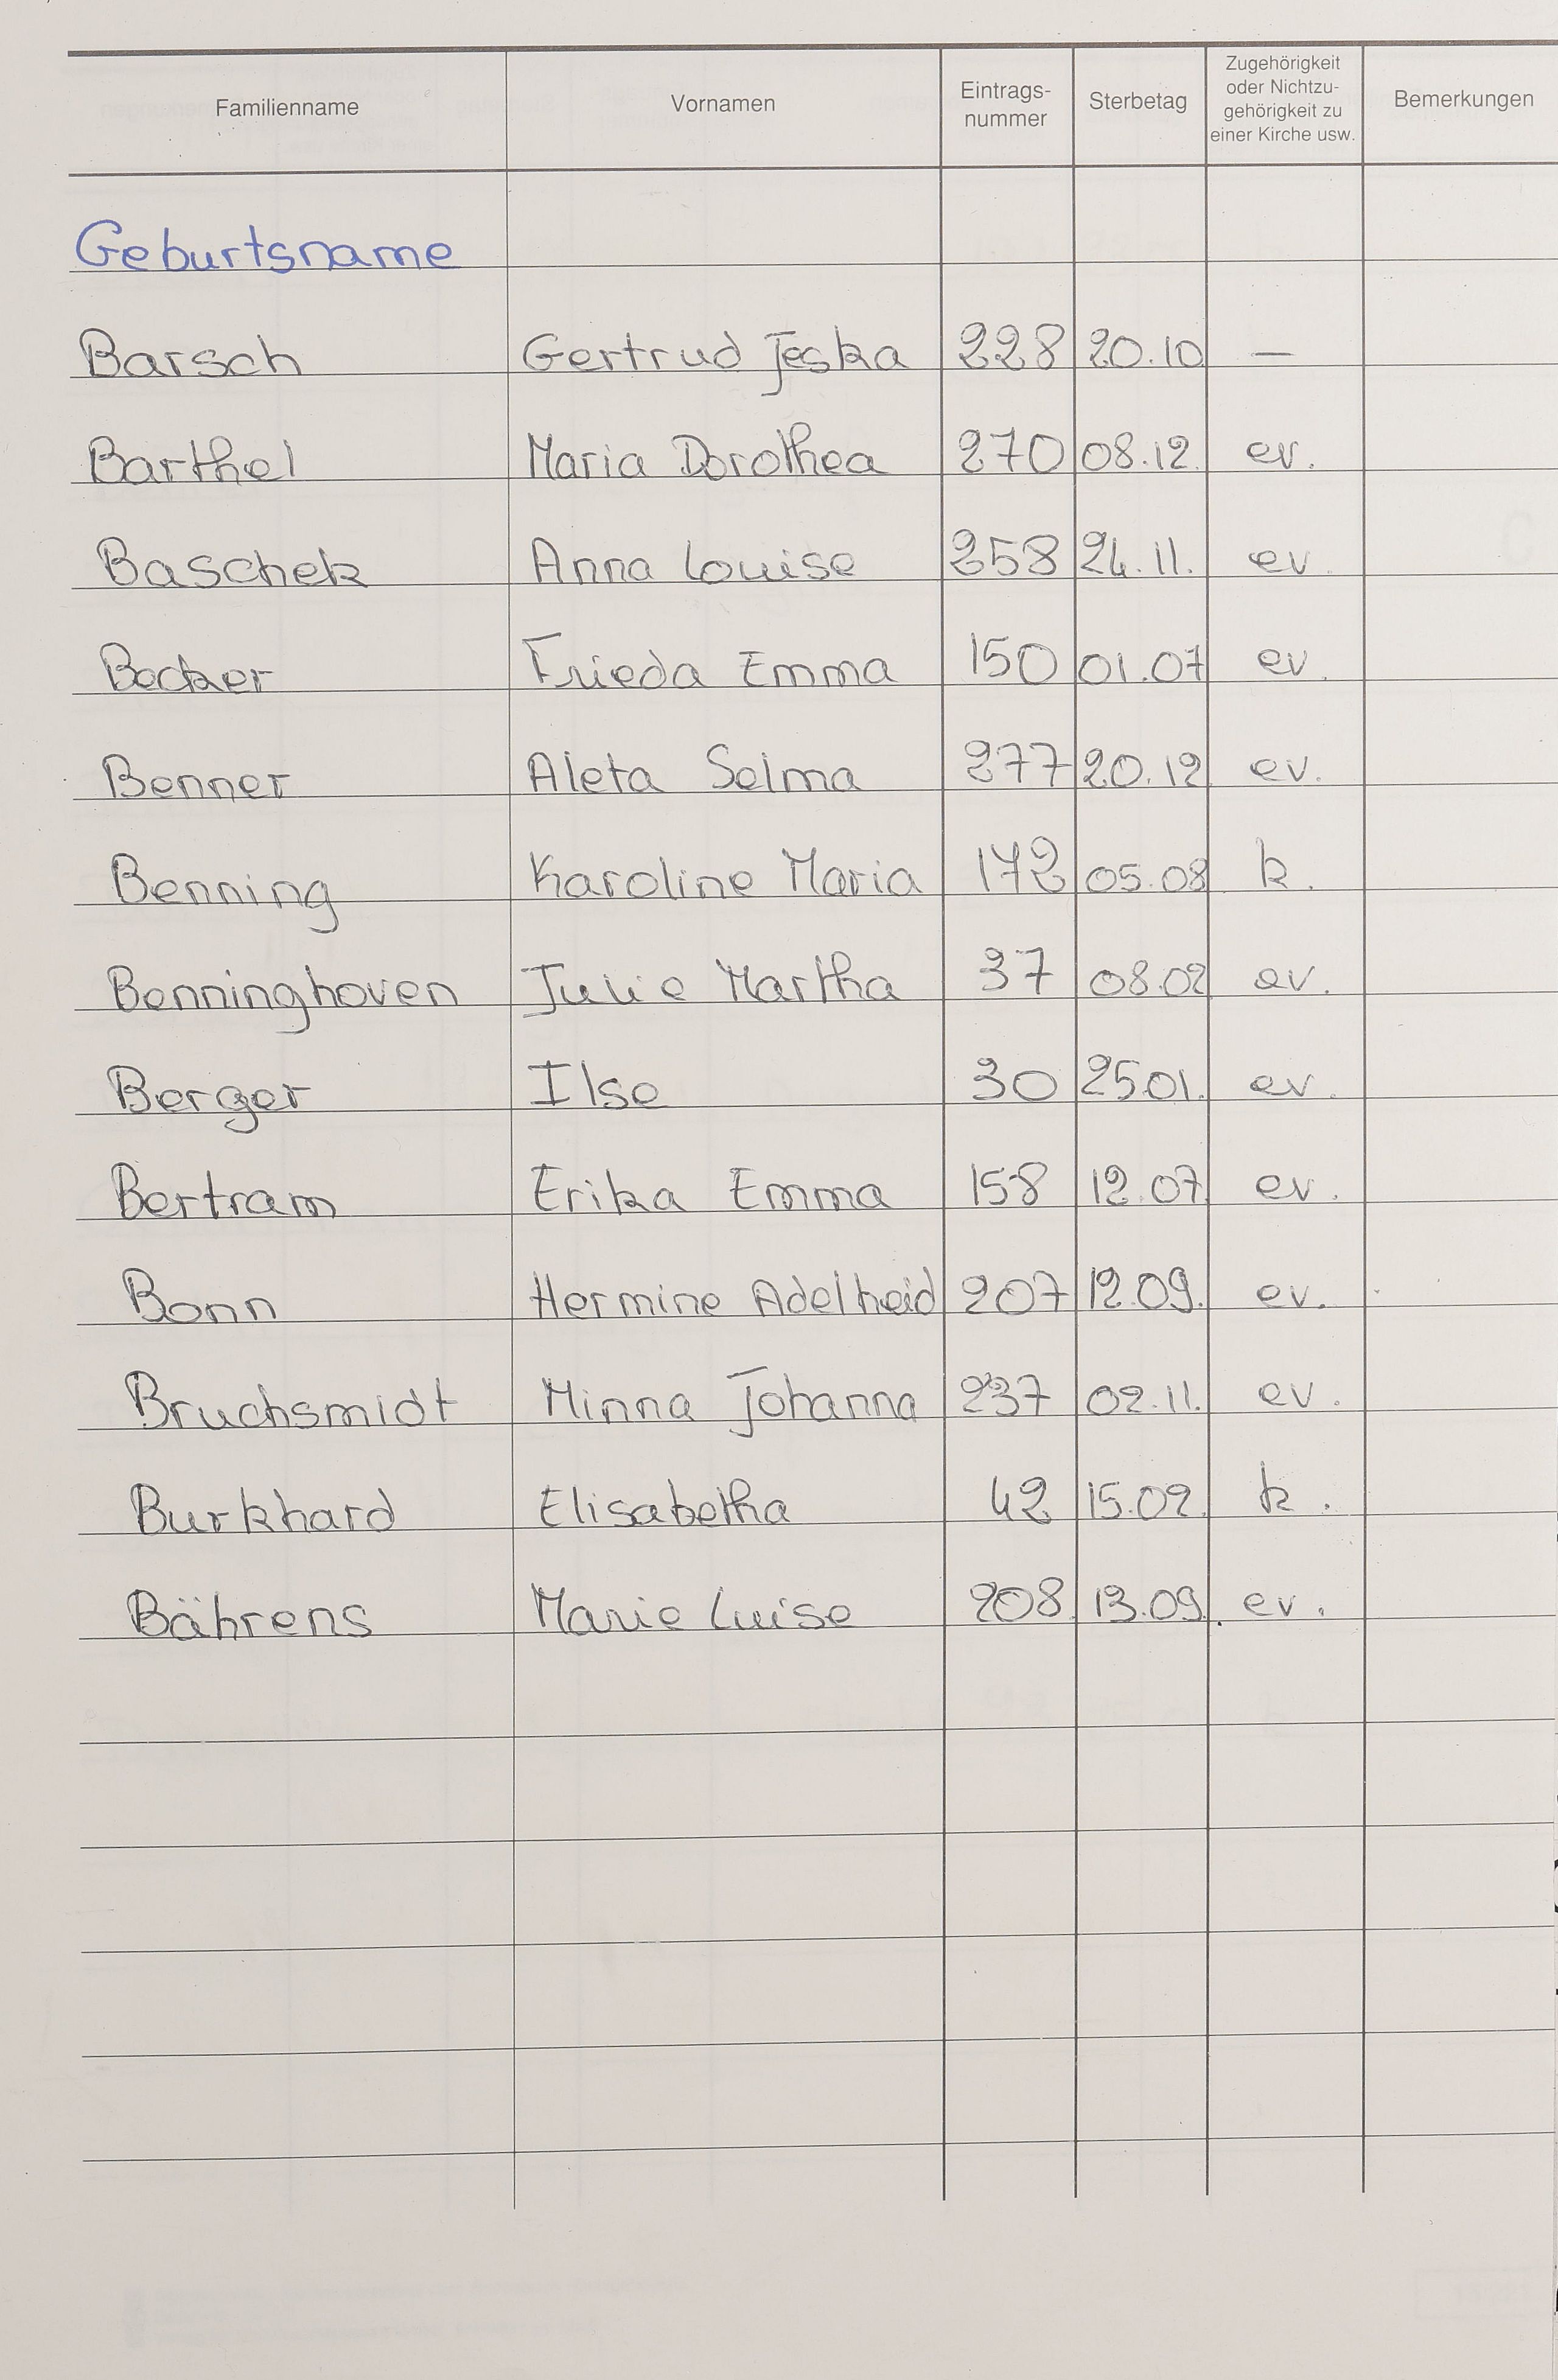 Familienname Vornamen Eintrags-nummer Sterbetag Zugehörigkeit oder Nichtzu-gehörigkeit zu einer Kirche usw. Bemerkungen
Geburtsname
Barsch Gertrud Jeska 228 20.10 —
Barthel Maria Dorothea 270 08.12. ev.
Baschek Anna Louise 258 24.11. ev.
Becker Frieda Emma 150 01.07 ev.
Benner Aleta Selma 277 20.12 ev.
Benning Karoline Maria 172 05.08 k.
Benninghoven Julie Martha 37 08.02 ev.
Berger Ilse 30 25.01. ev.
Bertram Erika Emma 158 12.07. ev.
Bonn Hermine Adelheid 207 12.09. ev.
Bruchsmidt Minna Johanna 237 02.11. ev.
Burkhard Elisabetha 42 15.02. k.
Bährens Marie Luise 208 13.09. ev.